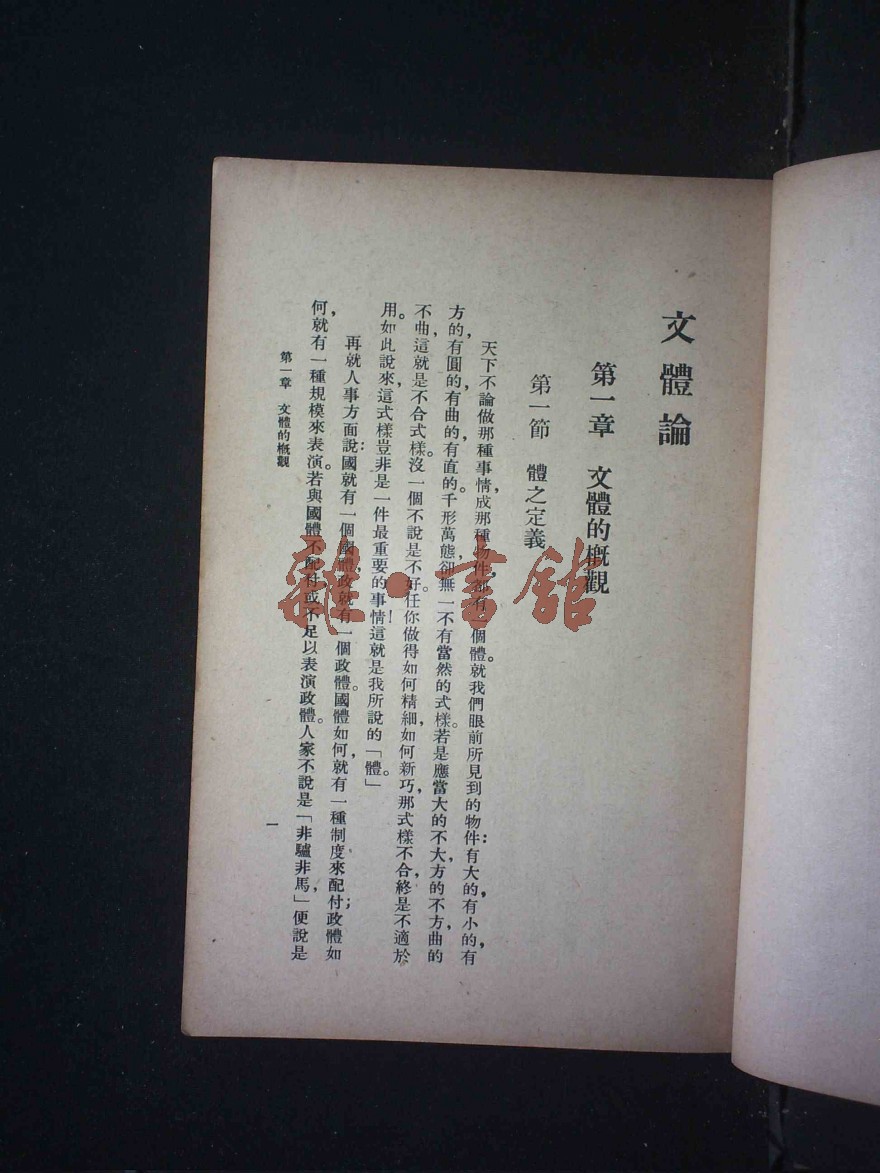 文體論
第一章 文體的概觀
第一節 體之定義
天下不論做那種事情，成那種物件，都有一個體。就我們眼前所見到的物件：有大的，有小的，有
方的，有圓的，有曲的，有直的。千形萬態，卻無一不有當然的式樣。若是應當大的不大，方的不方，曲的
不曲，這就是不合式樣。沒一個不說是不好。任你做得如何精細，如何新巧，那式樣不合，終是不適於
用。如此說來，這式樣豈非是一件最重要的事情！這就是我所說的「體。」
再就人事方面說：國就有一個國體，政就有一個政體。國體如何，就有一種制度來配付；政體如
何，就有一種規模來表演。若與國體不配付，或不足以表演政體。人家不說是「非驢非馬，」便說是
第一章 文體的概觀
一
雜·書館